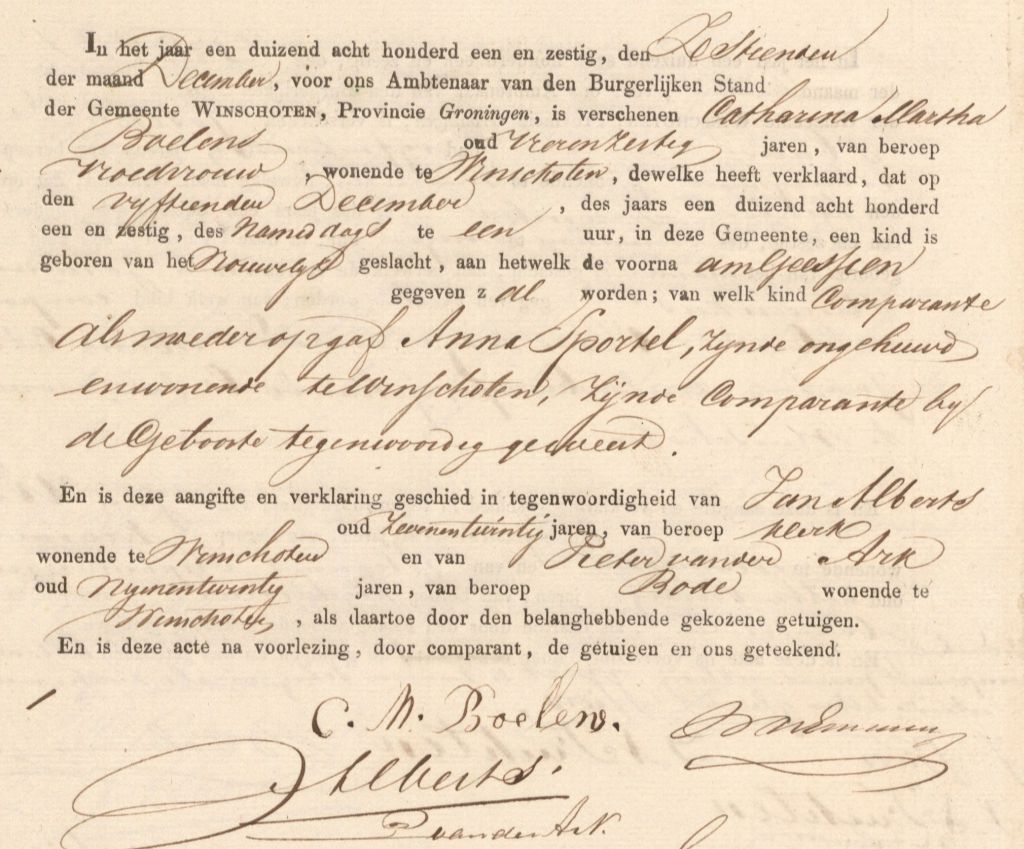 In het jaar een duizend acht honderd een en zestig, den Zestienden
der maand December, voor ons Ambtenaar van den Burgerlijken Stand
der Gemeente WINSCHOTEN, Provincie Groningen, is verschenen Catharina Martha
Boelens oud Vierenzestig jaren, van beroep
Vroedvrouw, wonende te Winschoten, dewelke heeft verklaard, dat op
den vyftienden December, des jaars een duizend acht honderd
een en zestig, des Namiddags te een uur, in deze Gemeente, een kind is
geboren van het Vrouwelyk geslacht, aan hetwelk de voorna am Geessien
gegeven z al worden; van welk kind Comparante
als moeder opgaf Anna Sportel, Zynde ongehuwd
en wonende te Winschoten, Zijnde Comparante by
de Geboorte tegenwoordig geweest.
En is deze aangifte en verklaring geschied in tegenwoordigheid van Jan Alberts
oud Zevenentwintig jaren, van beroep klerk
wonende te Winschoten en van Pieter van der Ark
oud Negenentwintig jaren, van beroep Bode wonende te
Winschoten, als daartoe door den belanghebbende gekozene getuigen.
En is deze acte na voorlezing, door comparant, de getuigen en ons geteekend.
C. M. Boelens.
Alberts.
P van der Ark.